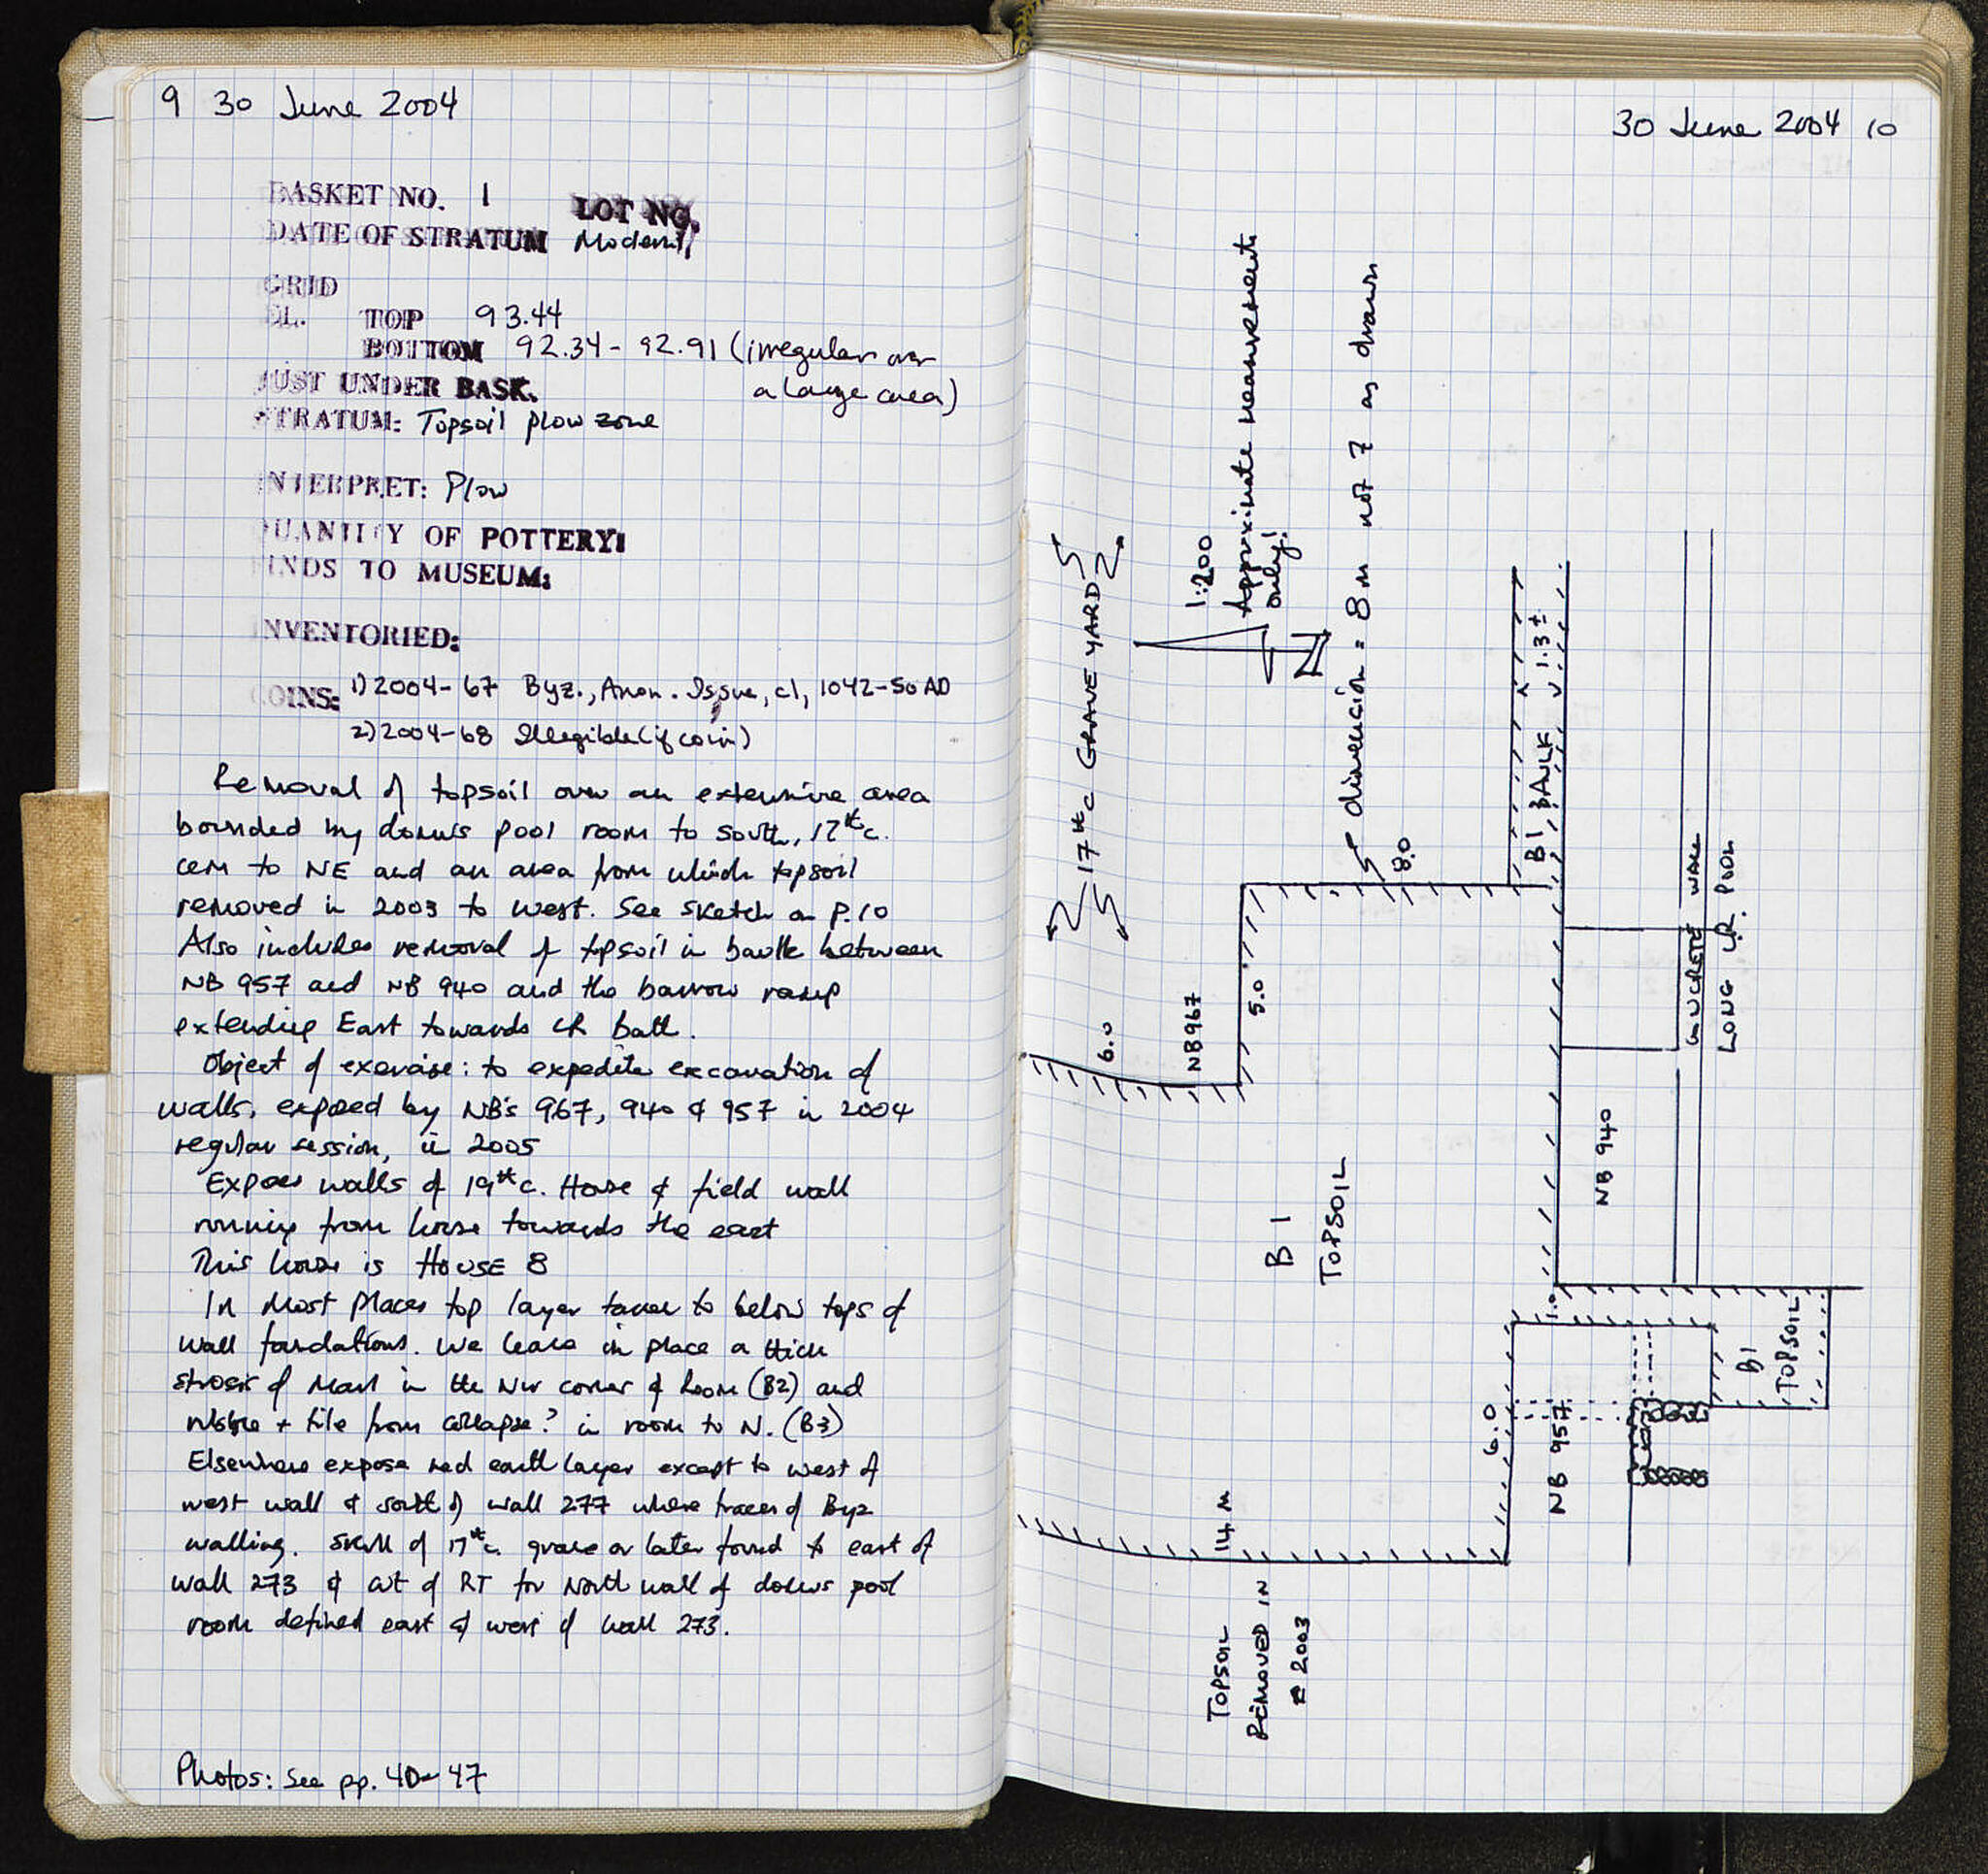 9 30 June 2004
BASKET NO. 1 LOT NO.
DATE OF STRATUM Modern
GRID
EL. TOP 93.44
BOTTOM 92.34 - 92.91 (irregular over
a large area)
JUST UNDER BASK.
STRATUM: Topsoil plow zone
INTERPRET: Plow
QUANTITY OF POTTERY:
FINDS TO MUSEUM:
INVENTORIED:
COINS: 1) 2004-67 Byz., Anon. Issue, cl, 1042-50 AD
2) 2004-68 Illegible (if coin)
Removal of topsoil over an extensive area
bounded by domus pool room to south, 17th c.
cem to NE and an area from which topsoil
removed in 2003 to west. See sketch on p.10
Also includes removal of topsoil in baulk between
NB 957 and NB 940 and the barrow ramp
extending East towards LR bath.
Object of exercise: to expedite excavation of
walls, exposed by NB's 967, 940 & 957 in 2004
regular session, in 2005
Expose walls of 19th c. House & field wall
running from house towards the east
This house is HOUSE 8
In most places top layer taken to below tops of
wall foundations. We leave in place a thick
of marl in the NW corner of Room (B2) and
+ tile from collapse? in room to N. (B3)
Elsewhere expose red earth layer except to west of
west wall & south of wall 277 where traces of Byz
walling. Skull of 17th c. grave or later found to east of
wall 273 & cut of RT for north wall of domus pool
room defined east & west of wall 273.
Photos: See pp. 40-47
30 June 2004 10
17th c GRAVE YARD
1:200
Approximate measurements
only!
N
dimension = 8m not 7 as drawn
8.0
B1 BAULK 1.3±
6.0
NB967
5.0
CONCRETE WALL
LONG LR. POOL
NB 940
B1
TOPSOIL
1.0
B1
TOPSOIL
6.0
NB 957
14 M
TOPSOIL
REMOVED IN
2003